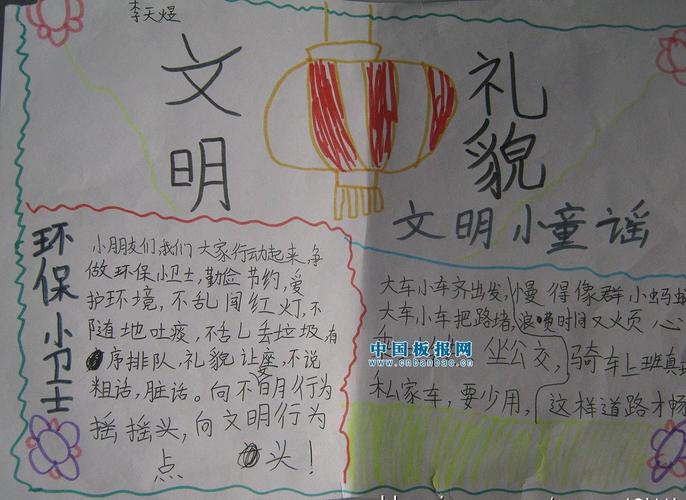 李天煜
文明
礼貌
文明小童谣
环保小卫士
小朋友们我们大家行动起来,争
做环保小卫士,勤俭节约,爱
护环境,不乱闯红灯,不
随地吐痰,不乱丢垃圾,有
序排队,礼貌让座,不说
粗话,脏话。向不文明行为
摇摇头,向文明行为
点头!
大车小车齐出发,慢得像群小蚂
大车小车把路堵,浪费时间又烦心
坐公交,骑车上班真
私家车,要少用,这样道路才畅
中国板报网
www.cnbanbao.cn